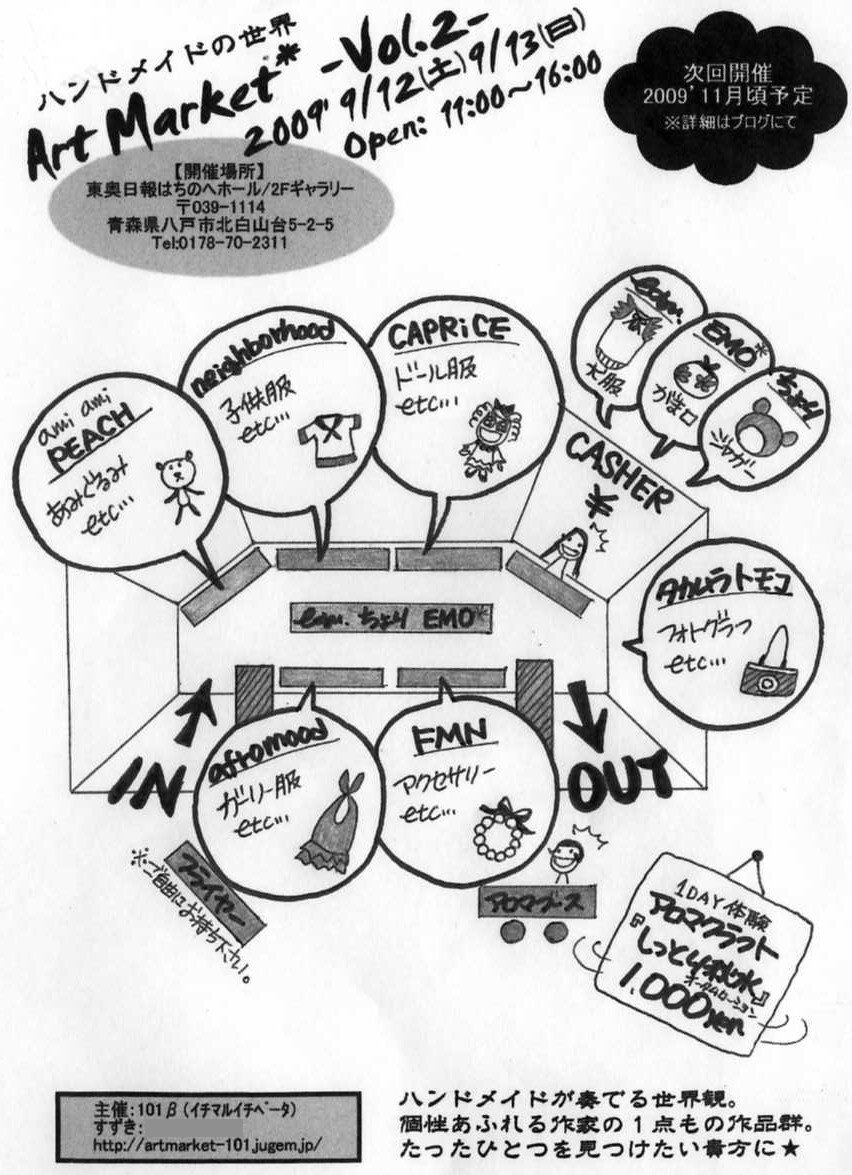 ハンドメイドの世界
Art Market* -Vol.2-
2009' 9/12(土) 9/13(日)
Open: 11:00~16:00
次回開催
2009'11月頃予定
※詳細はブログにて
【開催場所】
東奥日報はちのへホール/2Fギャラリー
〒039-1114
青森県八戸市北白山台5-2-5
Tel:0178-70-2311
ami ami
PEACH
あみぐるみ
etc…
neighborhood
子供服
etc…
CAPRiCE
ドール服
etc…
犬服
EMO*
がま口
ちょり
ジャガー
CASHER
¥
タカムラトモコ
フォトグラフ
etc…
ちょり EMO*
IN
OUT
afromood
ガーリー服
etc…
FMN
アクセサリー
etc…
フライヤー
※ご自由にお持ち下さい。
アロマブース
1DAY体験
アロマクラフト
『しっとり和水』
オータムローション
1,000yen
主催:101β(イチマルイチベータ)
すずき:
http://artmarket-101.jugem.jp/
ハンドメイドが奏でる世界観。
個性あふれる作家の1点もの作品群。
たったひとつを見つけたい貴方に★